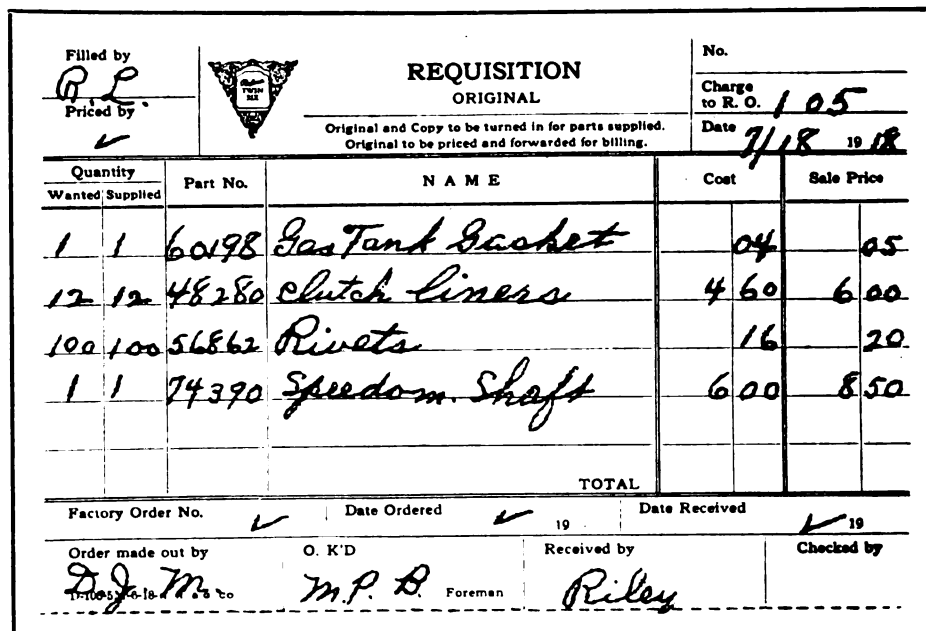 Filled by
R. L.
Priced by
✓
TWIN SIX
REQUISITION
ORIGINAL
Original and Copy to be turned in for parts supplied.
Original to be priced and forwarded for billing.
No.
Charge to R. O. 105
Date 7/18 1918
Quantity Part No. NAME Cost Sale Price
Wanted Supplied
1 1 60198 Gas Tank Gasket 04 05
12 12 48280 Clutch liners 4 60 6 00
100 100 56862 Rivets 16 20
1 1 74390 Speedom. Shaft 6 00 8 50
TOTAL
Factory Order No. ✓ Date Ordered ✓ 19 Date Received ✓ 19
Order made out by O. K'D Received by Checked by
D. J. M. M. P. B. Foreman Riley